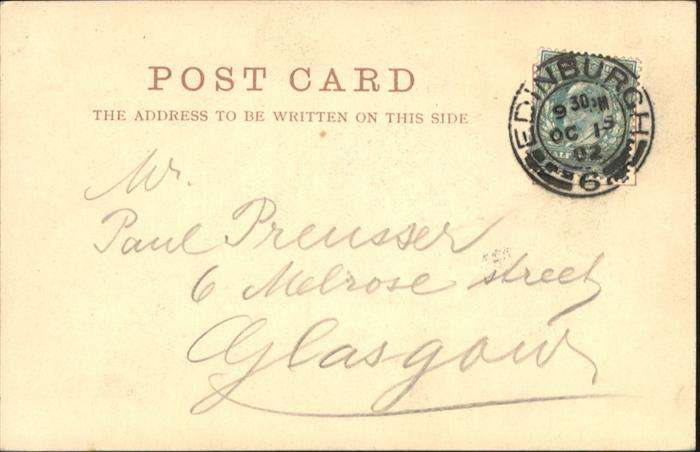 POST CARD
THE ADDRESS TO BE WRITTEN ON THIS SIDE
EDINBURGH
9 30 PM
OC 15
02
6
Mr.
Paul Preusser
6 Melrose street
Glasgow